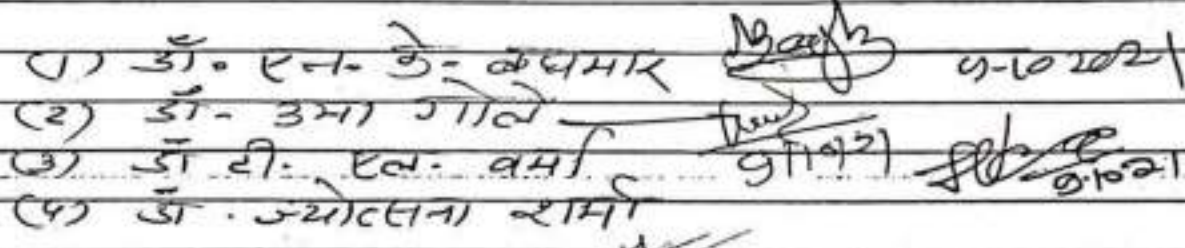 (1) डॉ. एन. के. बघमार 9-10 2021
(2) डॉ. उमा गोले 9/10/21
(3) डॉ टी. एल. वर्मा 9.10.21
(4) डॉ. ज्योत्सना शर्मा